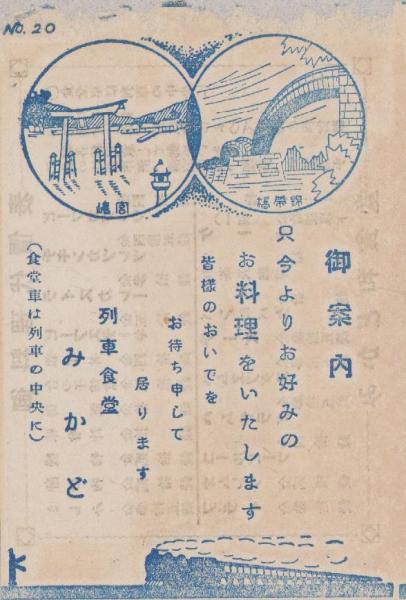 NO. 20
錦帯橋
宮嶋
御案内
只今よりお好みの
お料理をいたします
皆様のおいでを
お待ち申して
居ります
列車食堂
みかど
(食堂車は列車の中央に)